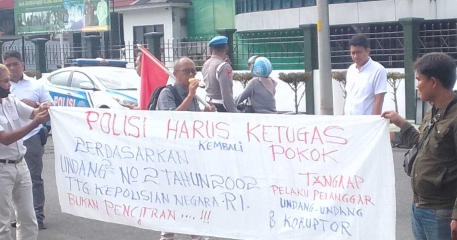 POLISI
POLISI HARUS KETUGAS
KEMBALI POKOK
BERDASARKAN
UNDANG² NO.2 TAHUN 2002
TTG KEPOLISIAN NEGARA-RI.
BUKAN PENCITRAN....!!!
TANGKAP
PELAKU PELANGGAR
UNDANG-UNDANG
& KORUPTOR